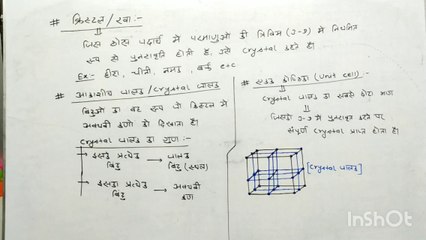 # क्रिस्टल / रवा :-
जिस ठोस पदार्थ में परमाणुओं की त्रिविम (3-D) में नियमित
रूप से पुनरावृत्ति होती है, उसे Crystal कहते हैं।
Ex:- हीरा, चीनी, नमक, बर्फ etc
# आकाशीय जालक / Crystal जालक
बिंदुओं का वह रूप जो क्रिस्टल में
अवयवी कणों को दिखाता है।
Crystal जालक का गुण :-
→ इसका प्रत्येक बिंदु → जालक बिंदु (स्थल)
→ इसका प्रत्येक बिंदु → अवयवी कण
# एकक कोष्ठिका (Unit cell) :-
Crystal जालक का सबसे छोटा भाग
जिसकी 3-D में पुनरावृत्ति करने पर
संपूर्ण Crystal प्राप्त होता है।
[Crystal जालक]
InShOt